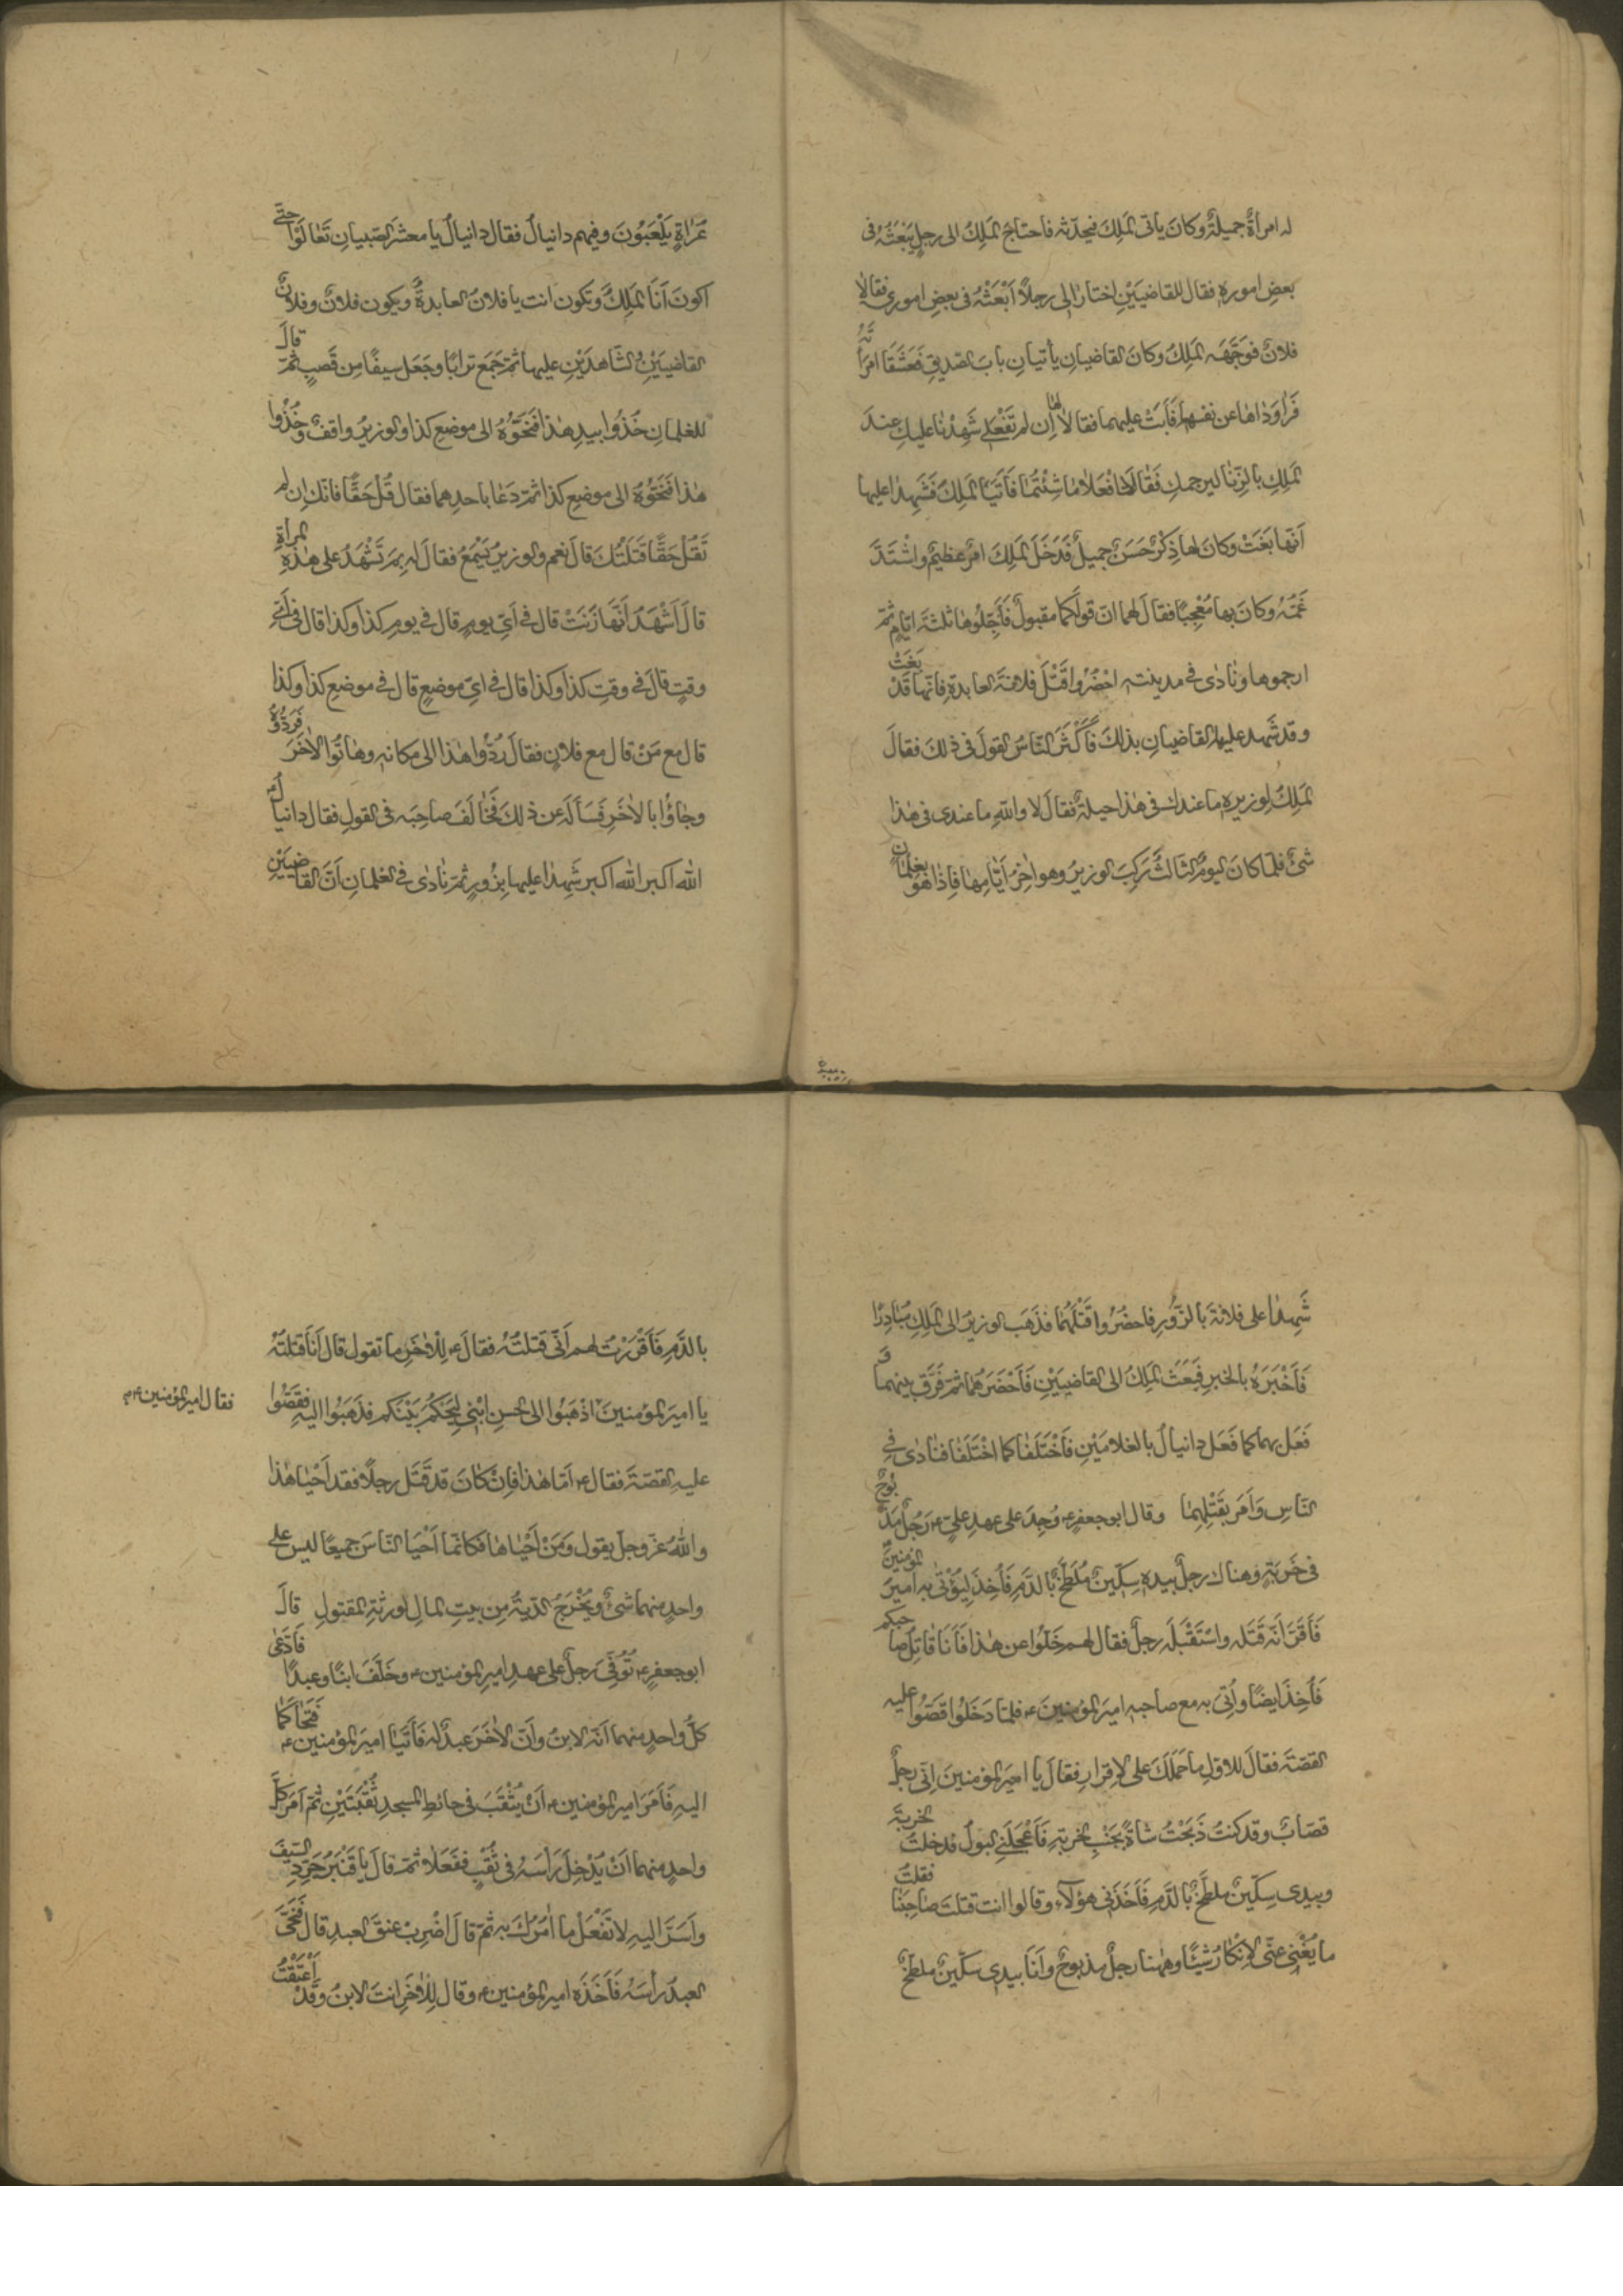 له امرأةٌ جميلةٌ وكانَ يأتى الملِكَ فيحدّثه فاحتاجَ الملِكُ الى رجلٍ يَبْعَثُهُ فى
بعضِ اموره فقال للقاضيَيْنِ اختارا الى رجلاً اَبْعَثْهُ فى بعضِ امورى فقالا
فلانٌ فوَجَّهَه الملِكُ وكانَ القاضيانِ يأتيانِ بابَ الصديقِ فَعَشَقَا امرَأَتَهُ
فَرَاوَدَاها عن نفسها فَأَبَتْ عليهما فقالا لها اِن لم تَفْعَلِى شَهِدْنَا عليكِ عندَ
الملِكِ بالزِّنا ليرجمكِ فَقَالَت افْعَلا ما شِئْتُمَا فَاَتَيَا الملِكَ فَشَهِدا عليها
اَنّها بَغَتْ وكانَ لها ذِكْرٌ حَسَنٌ جميلٌ فَدَخَلَ الملِكَ امرٌ عظيمٌ واشْتَدَّ
غَمُّهُ وكانَ بها مُعْجِبًا فقال لهما انّ قولَكُما مقبولٌ فَأَجِّلُوها ثلثةَ ايّامٍ ثمّ
ارجموها ونادى فى مدينته احْضُرُوا قَتْلَ فلانةَ العابدةِ فانّها قَدْ بَغَتْ
وقد شَهِد عليها القاضيانِ بذلكَ فَاَكْثَرَ النّاسُ القولَ فى ذلكَ فقالَ
الملِكُ لوزيره ما عندكَ فى هذا حيلةٌ فقالَ لا واللهِ ما عندى فى هذا
شئٌ فلمّا كان اليومُ الثالثُ رَكِبَ الوزيرُ وهو اٰخِرُ اَيَّامِها فاِذا هو بغلمانٍ
عُرَاةٍ يَلْعَبُونَ وفيهم دانيالُ فقال دانيالُ يا معشرَ الصّبيانِ تَعَالَوْا حتّى
اكونَ اَنَا الملِكُ وتكون انت يا فلانُ العابدةَ ويكون فلانٌ وفلانٌ
القاضيَيْنِ الشّاهدَيْنِ عليها ثمّ جَمَعَ ترابًا وجَعَل سيفًا مِن قَصَبٍ ثمّ قالَ
للغلمانِ خُذُوا بيدِ هذا فَنَحُّوهُ الى موضعِ كذا والوزيرُ واقفٌ وخُذُوا
هذا فَنَحُّوهُ الى موضعِ كذا ثمّ دَعَا باحدِهما فقال قُل حَقًّا فانّك اِن لم
تَقُلْ حَقًّا قَتَلْتُكَ قالَ نعم والوزيرُ يَسْمَعُ فقالَ له بِمَ تَشْهَدُ على هذِهِ المرأةِ
قالَ اَشْهَدُ اَنَّهَا زَنَتْ قال فى اَىِّ يومٍ قال فى يومِ كذا وكذا قال فى اَىِّ
وقتٍ قالَ فى وقتِ كذا وكذا قال فى اىّ موضعٍ قال فى موضعِ كذا وكذا
قال مع مَنْ قال مع فلانٍ فقالَ رُدُّوا هذا الى مكانه وهاتُوا الاٰخَرَ فَرَدُّوهُ
وجاؤُا بالاٰخَرِ فَسَأَلَه عن ذلكَ فَخَالَفَ صاحِبَه فى القولِ فقال دانيالُ
الله اكبر الله اكبر شَهِدا عليها بِزُورٍ ثمّ نادى فى الغلمانِ اَنّ القاضيَيْنِ
شَهِدا على فلانةَ بالزُّورِ فاحضُرُوا قَتْلَهُما فذَهَب الوزيرُ الى الملِكِ مُبَادِرًا
فَاَخْبَرَهُ بالخبرِ فَبَعَثَ الملِكُ الى القاضيَيْنِ فَاَحْضَرَهُمَا ثمّ فَرَّقَ بينهما وَ
فَعَل بهما كما فَعَل دانيالُ بالغلامَيْنِ فَاخْتَلَفَا كما اخْتَلَفَا فنادى فى
النّاسِ وَاَمَر بِقَتْلِهِما وقال ابو جعفرٍ ع وُجِدَ على عهدِ علىٍّ ع رَجُلٌ مَذْبُوحٌ
فى خَرِبَةٍ وهناك رجلٌ بيده سِكّينٌ مُلَطَّخٌ بالدّمِ فَاُخِذَ لِيُؤْتى به اميرَ المؤمنينَ
فَاَقَرَّ اَنّه قَتَلَه واسْتَقْبَلَه رجلٌ فقال لهم خَلُّوا عن هذا فَاَنَا قاتِلُ صاحبكم
فَاُخِذَ ايضًا واُتِىَ به مع صاحبه اميرَ المؤمنينَ ع فلمّا دَخَلُوا قَصُّوا عليه
القصّةَ فقالَ للاوّلِ ما حَمَلَكَ على الاِقرارِ فقالَ يا اميرَ المؤمنينَ اِنّى رجلٌ
قصّابٌ وقد كنتُ ذَبَحْتُ شاةً بجَنْبِ الخربةِ فَاَعْجَلَنِى البولُ فدخلتُ الخربةَ
وبيدى سِكّينٌ ملطّخٌ بالدّمِ فَاَخَذَنى هؤلاء وقالوا انت قتلتَ صاحبَنَا فقلتُ
ما يُغْنِى عنّى الاِنْكارُ شيئًا وههنا رجلٌ مذبوحٌ وانَا بيدى سكّينٌ ملطّخٌ
بالدَّمِ فَاَقْرَرْتُ لهم اَنّى قتلتُهُ فقالَ ع لِلْاٰخَرِ ما تقول قال اَنَا قتلتُهُ
يا اميرَ المؤمنينَ فقال امير المؤمنين ع اذْهَبُوا الى الحسنِ ابْنِى لِيَحْكُمَ بَيْنَكم فذَهَبُوا اليهِ فقَصُّوا
عليهِ القصّةَ فقال ع اَمّا هذا فاِنْ كانَ قد قَتَل رجلًا فقد اَحْيَا هٰذا
واللهُ عزّ وجلّ يقول وَمَنْ اَحْيَاها فكانّما اَحْيَا النّاسَ جميعًا ليس على
واحدٍ منهما شئٌ ويُخْرَجُ الدّيةُ مِن بيتِ المالِ لورثةِ المقتولِ قالَ
ابو جعفرٍ ع تُوُفِّىَ رجلٌ على عهدِ اميرِ المؤمنين ع وخَلَّفَ ابنًا وعبدًا فَادَّعى
كلُّ واحدٍ منهما انّه الابنُ واَنّ الاٰخَرَ عبدٌ له فَاَتَيَا اميرَ المؤمنين ع فَتَحَاكَمَا
اليهِ فَاَمَرَ اميرُ المؤمنين ع اَنْ يُثْقَبَ فى حائطِ المسجدِ ثُقْبَتَيْنِ ثمّ اَمَر كلَّ
واحدٍ منهما اَنْ يُدْخِلَ رَأْسَهُ فى ثُقْبٍ ففَعَلا ثمّ قالَ يا قَنْبَرُ جَرِّدِ السّيفَ
واَسَرَّ اليهِ لا تَفْعَلْ ما اٰمُرُكَ به ثمّ قالَ اضْرِبْ عنقَ العبدِ قال فَنَحَّى
العبدُ رأسَهُ فَاَخَذَه اميرُ المؤمنين ع وقال لِلْاٰخَرِ انتَ الابنُ وقَدْ اَعْتَقْتُ